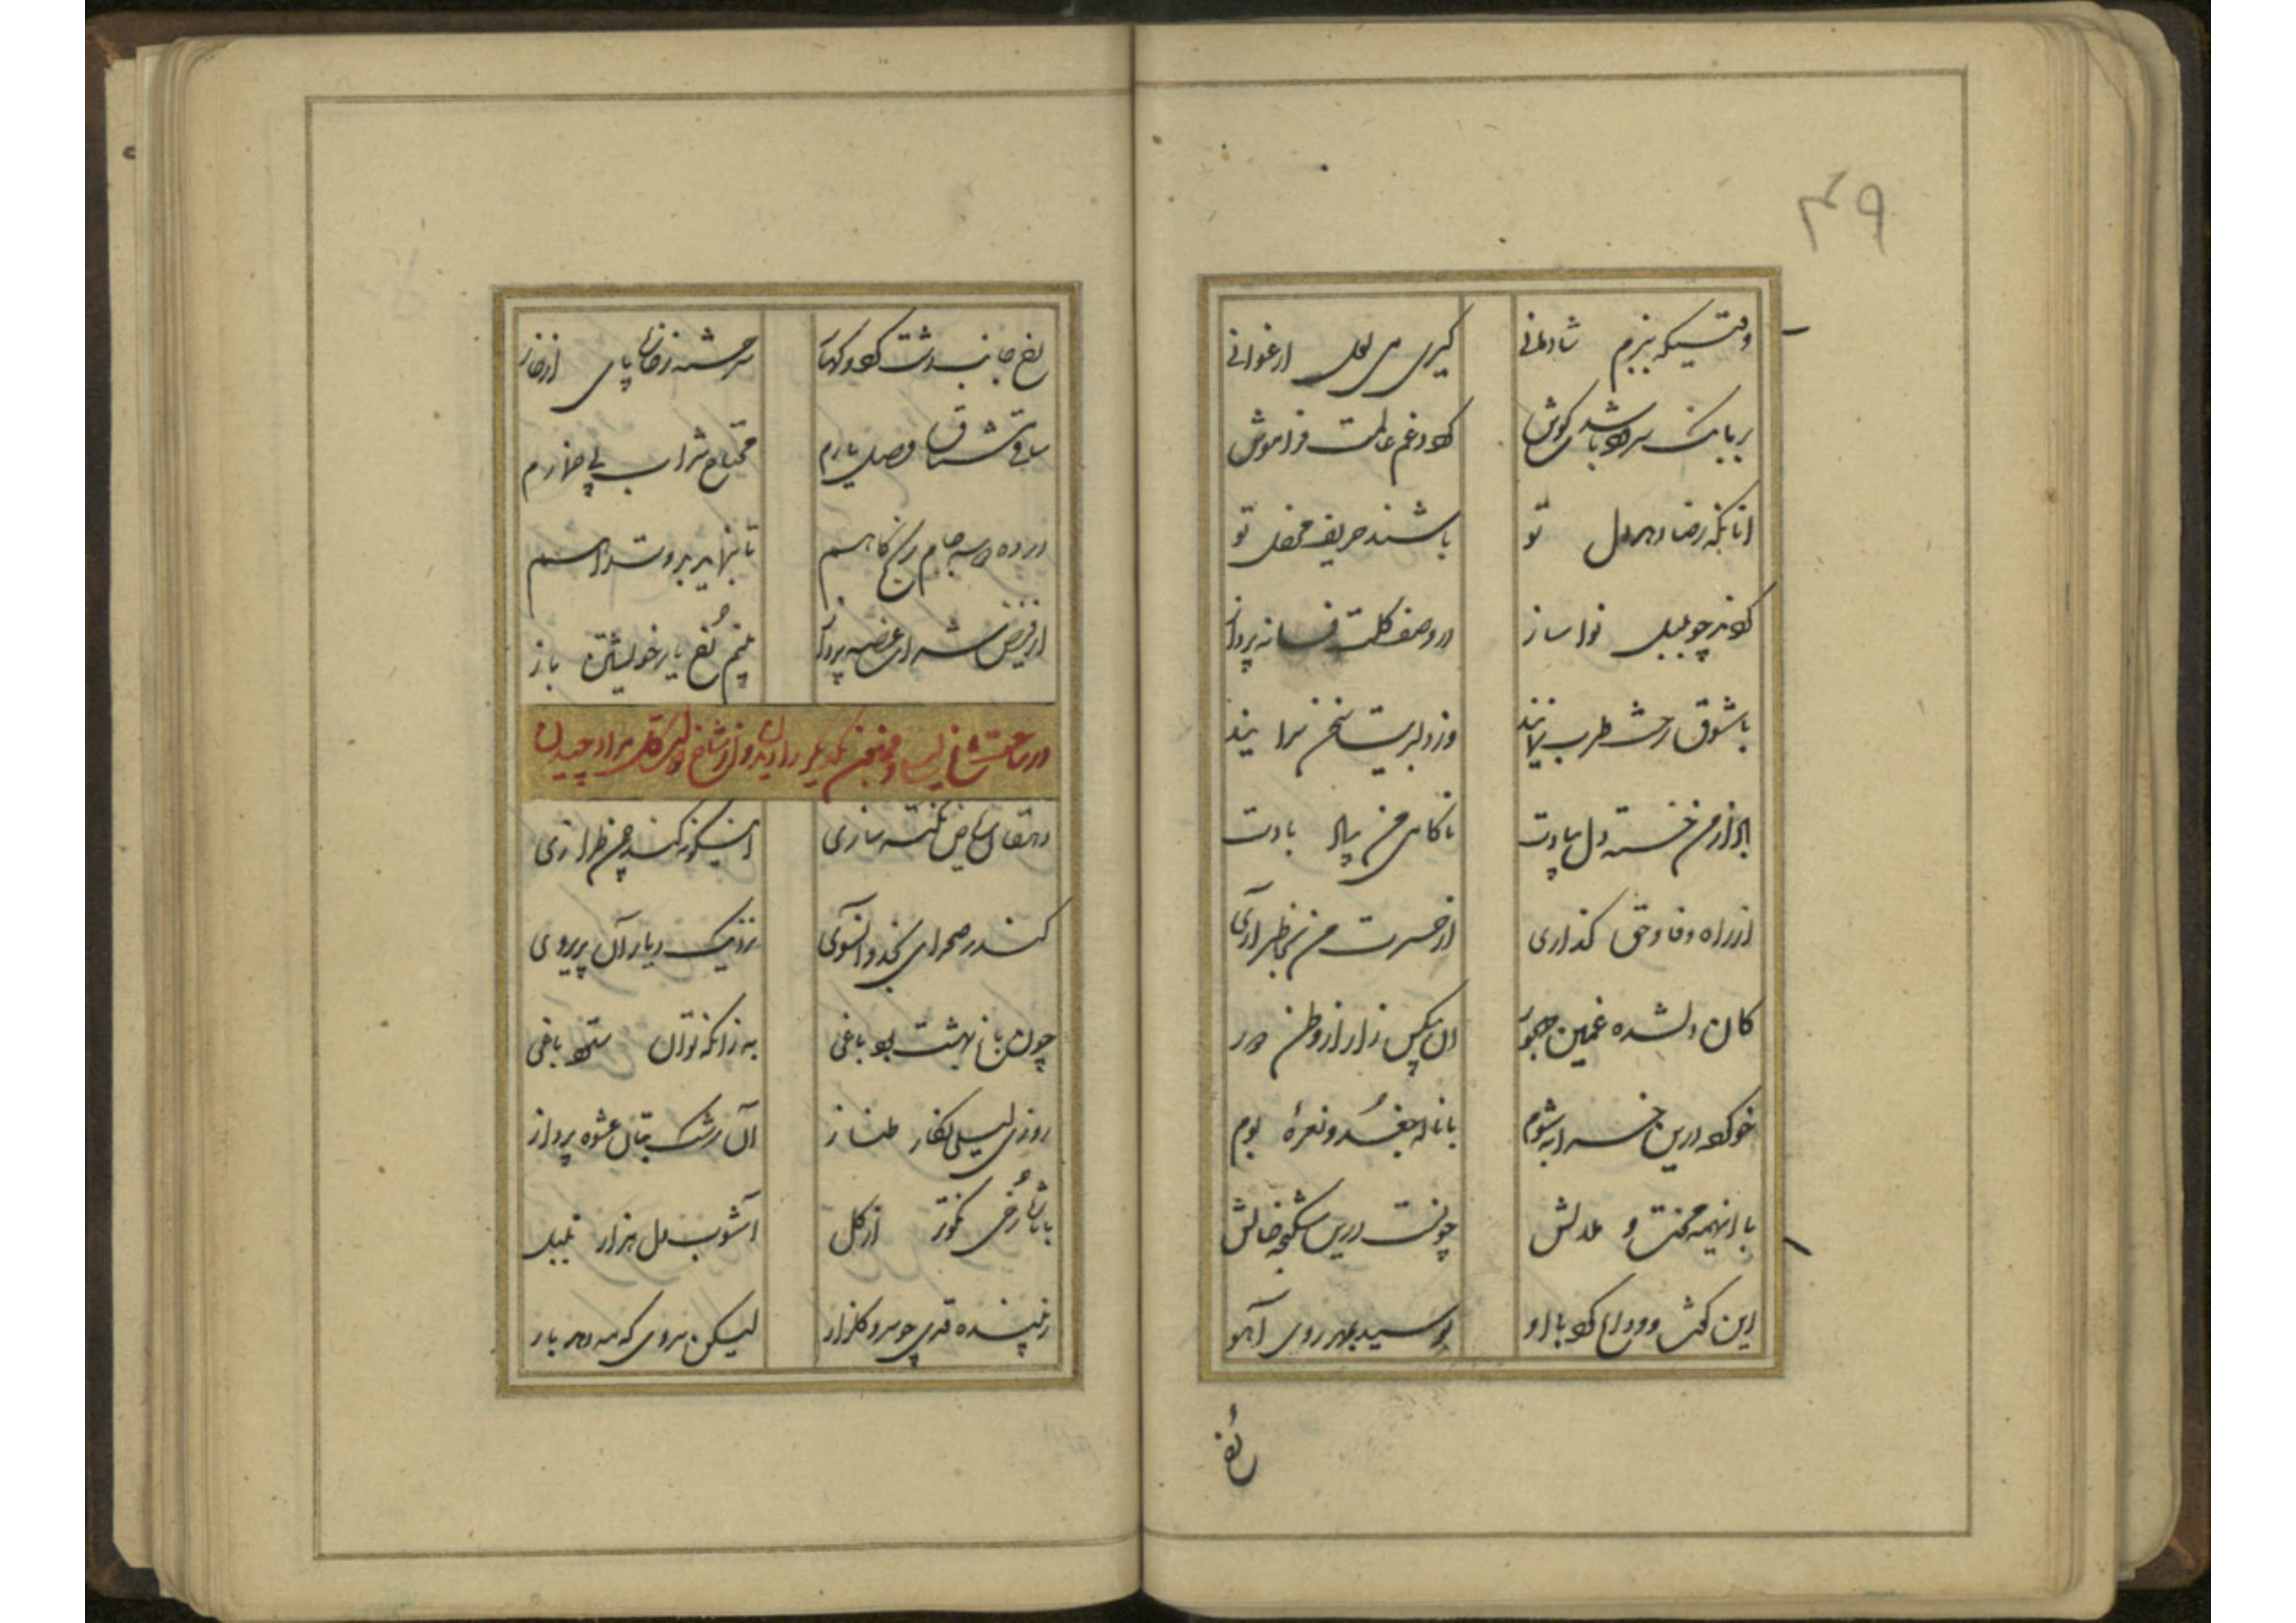 ۴۹
وقتیکه ببزم شادمانی گیری می لعل ارغوانی
بر بانک سرود باشدی گوش گردد غم عالمت فراموش
آنانکه رضا دهد دل تو باشند حریف محفل تو
گردند چو بلبل نواساز در وصف گلت فسانه پرداز
با شوق رخت طرب فزایند وز دلبریت سخن سرایند
از من خسته دل بیادت ناکامی من بیاد بادت
از راه وفا و حق گذاری از حسرت من بخاطر آری
کان دلشده غمین مهجور آن بیکس زار از وطن دور
خو کرده درین خرابه شوم با ناله جغد و نعره بوم
با اینهمه محنت و ملالش چونست درین شکنجه حالش
این گفت و وداع کرد با او بوسید بمهر روی آهو
رخ
رخ جانب دشت کرد و کهسار سر خسته ز خاک پای از خار
ساقی مشتاق وصل یارم محتاج شراب بی خمارم
در ده دو سه جام تا نماید بروست
از فیض ای غصه پرداز بینم رخ یار خویشتن باز
در ساحت لیلی و مجنون یکدیگر را دیدن و از شاخ گل مراد چیدن
دهقان ریاض نکته سازی اینگونه کند چمن طرازی
کندر صحرای نجد و آنسوی نزدیک دیار آن پریروی
چون باغ بهشت بود باغی به زانکه توان ستود باغی
روزی لیلی نگار طناز آن رشک بتان عشوه پرداز
با تازه رخی نکوتر از گل آشوب دل هزار بلبل
زیبنده قدی چو سرو گلزار لیکن سروی که مه دهد بار